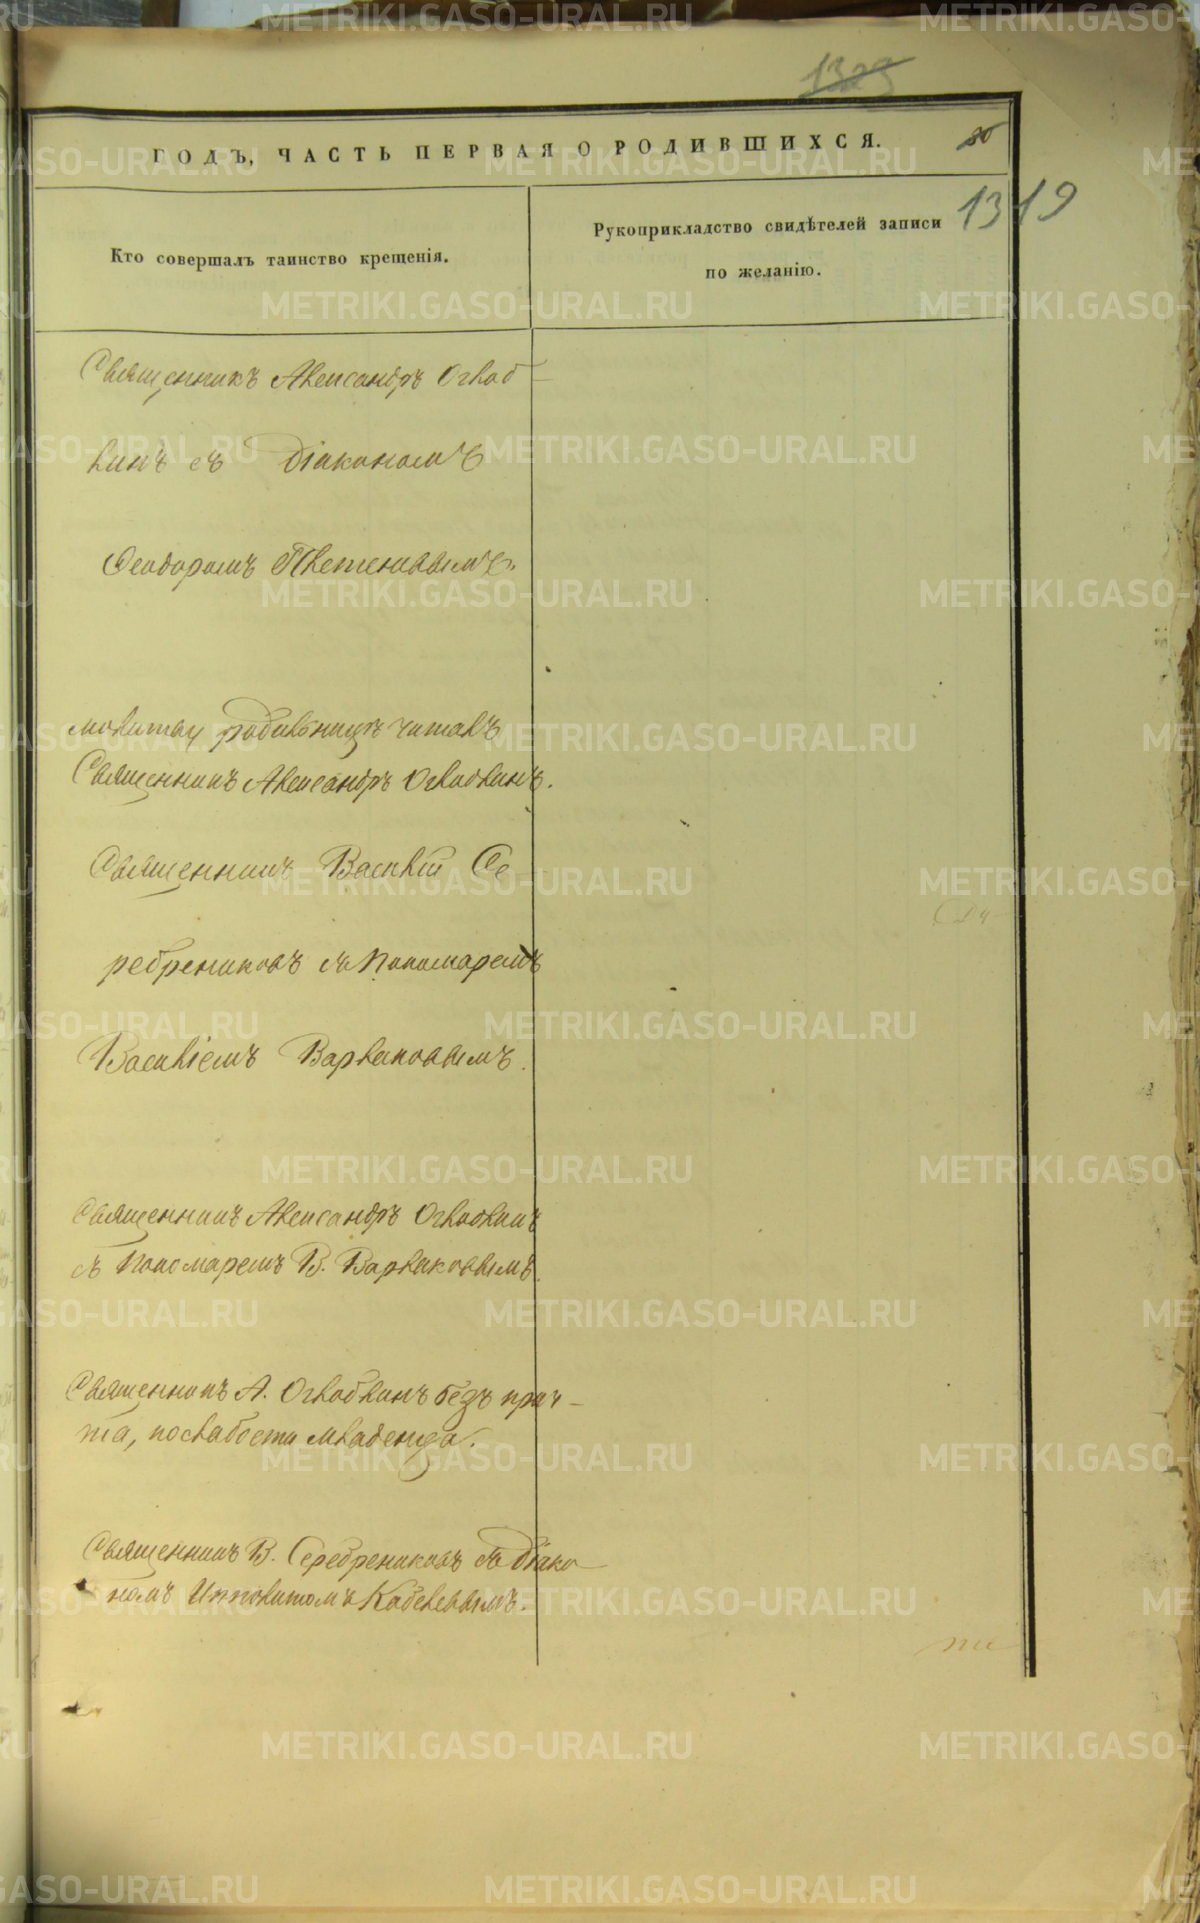 1323
ГОДЪ, ЧАСТЬ ПЕРВАЯ О РОДИВШИХСЯ.
80
1319
Кто совершалъ таинство крещенія.
Рукоприкладство свидѣтелей записи
по желанію.
Священникъ Александръ Оглоб-
линъ съ Діакономъ
Ѳеодоромъ Плетеневымъ.
молитву родильницѣ читалъ
Священникъ Александръ Оглоблинъ.
Священникъ Василій Се
ребрениковъ съ Пономаремъ
Василіемъ Варлаковымъ.
Священникъ Александръ Оглоблинъ
съ Пономаремъ В. Варлаковымъ.
Священникъ А. Оглоблинъ безъ прич-
та, по слабости младенца.
Священникъ В. Серебрениковъ съ Діако-
номъ Ипполитомъ Кобелевымъ.
METRIKI.GASO-URAL.RU